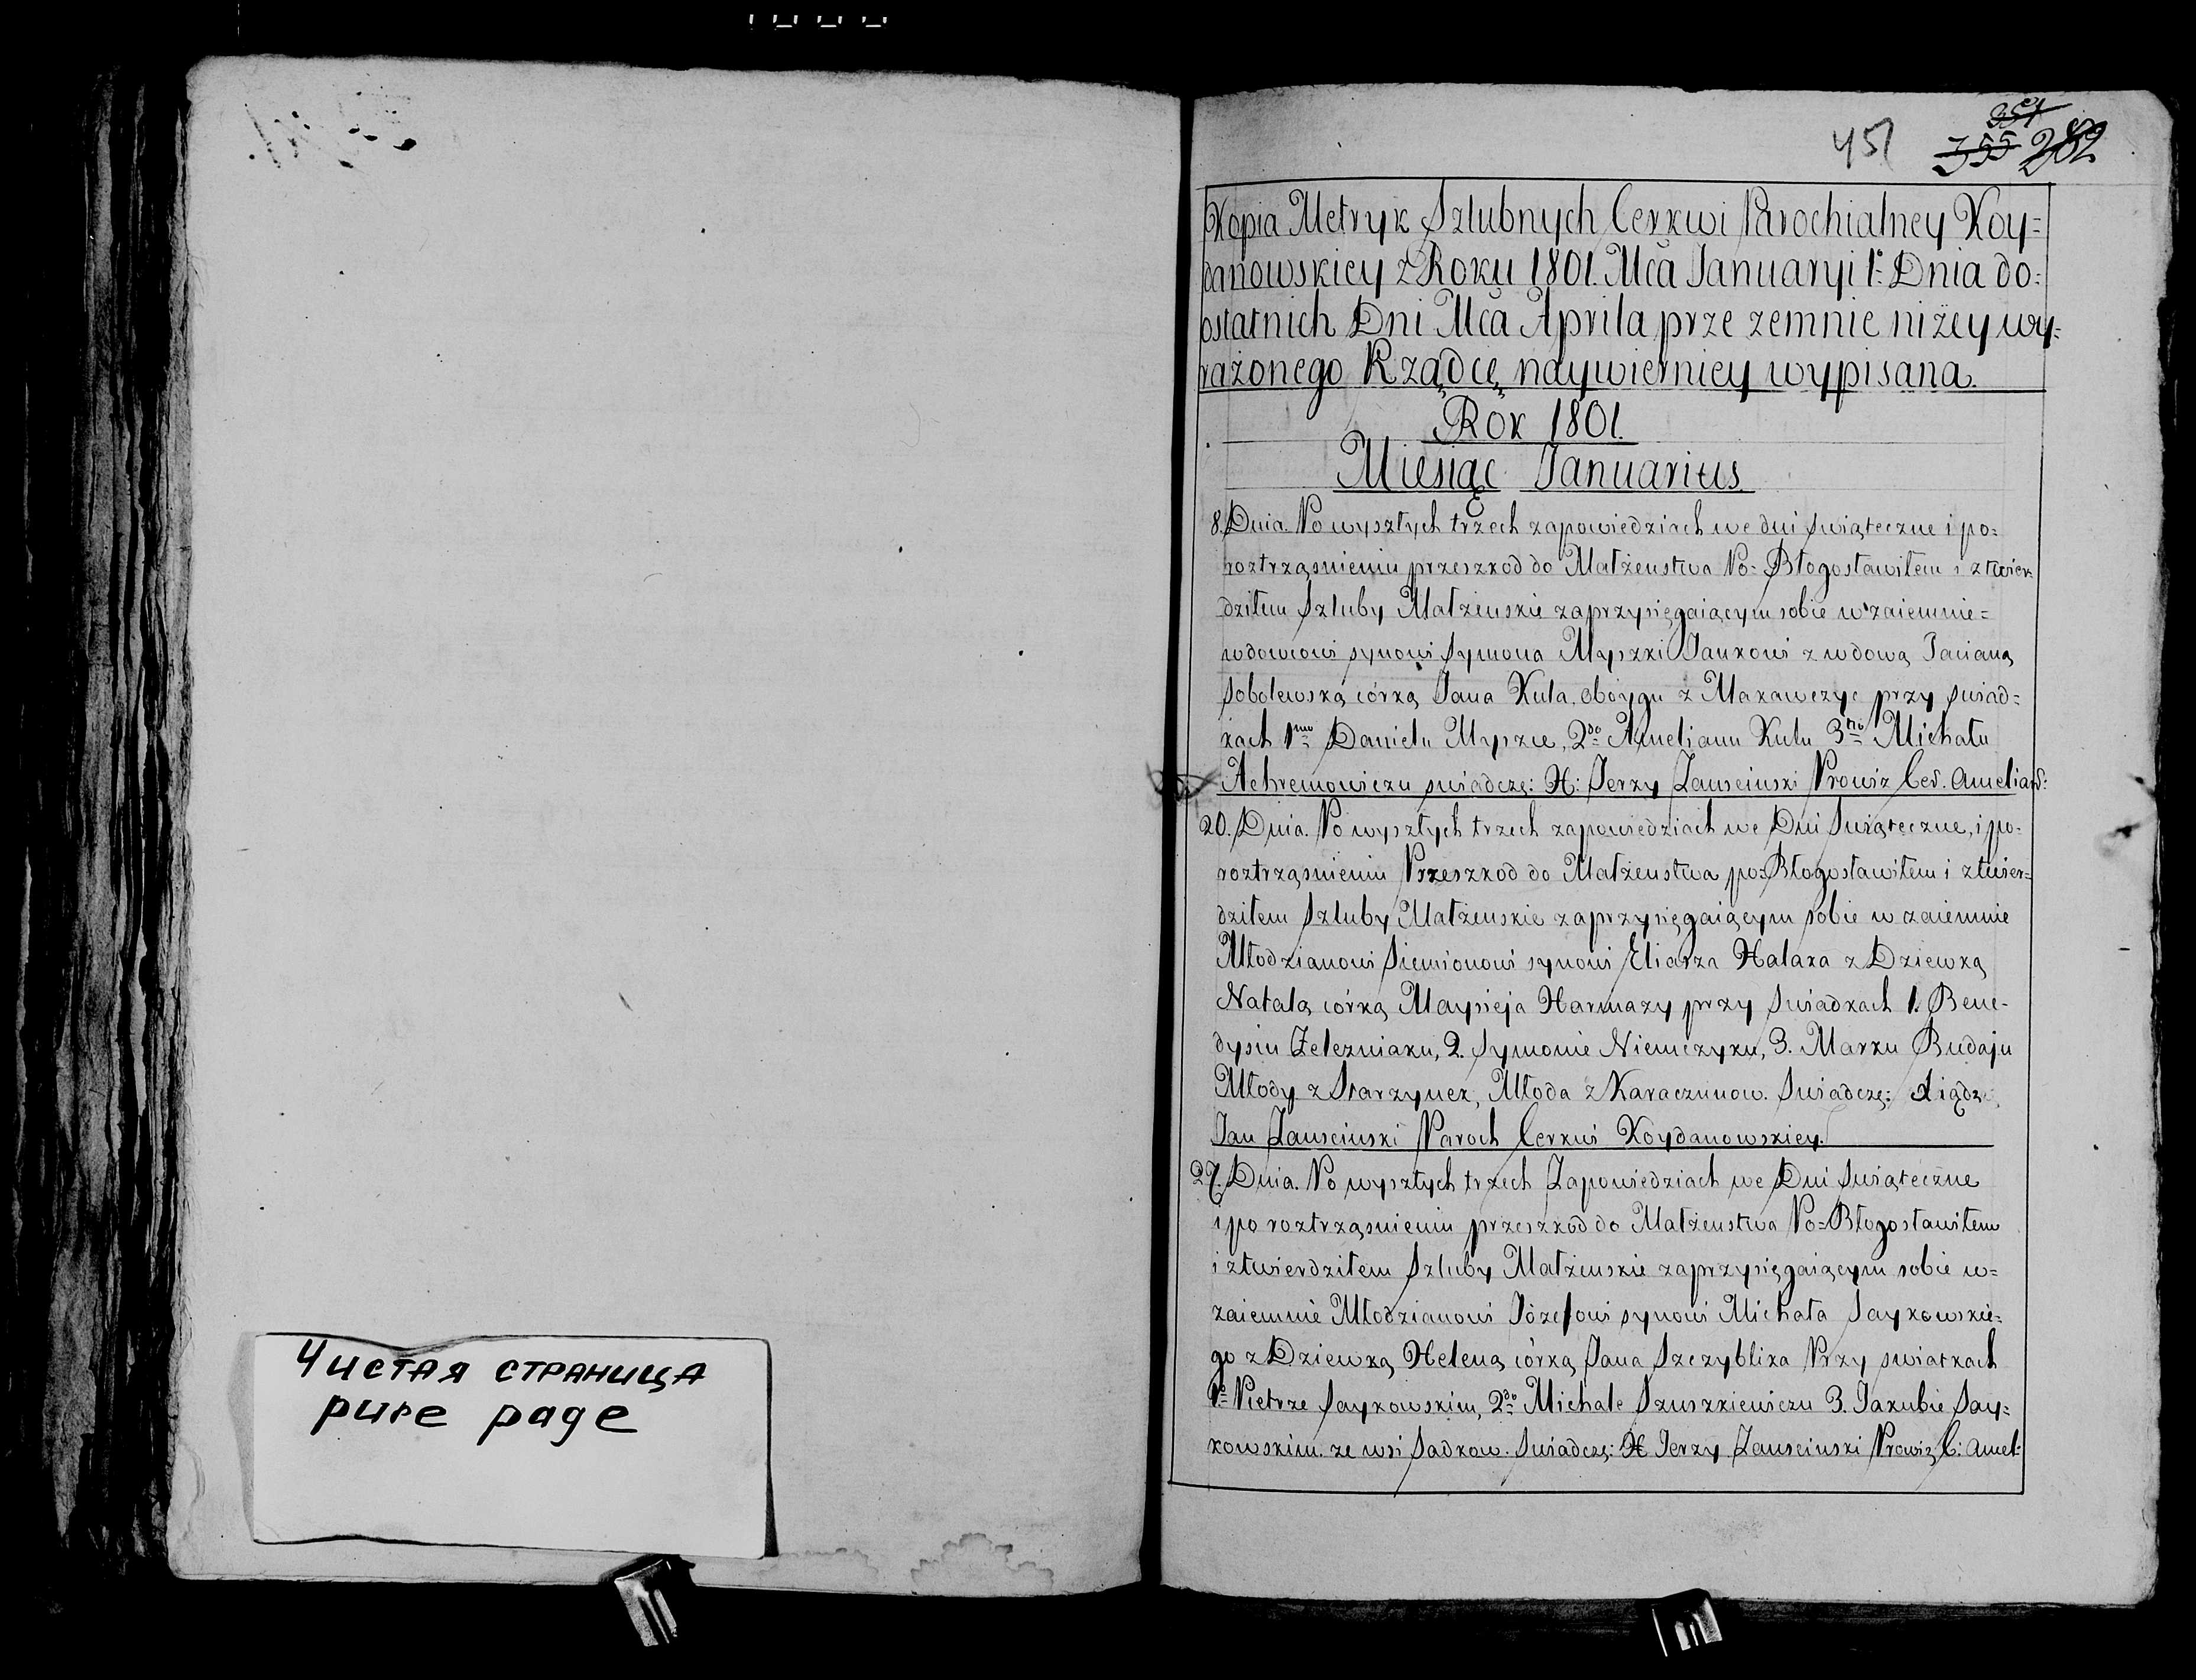 Чистая страница
pure page
451
351
355 282
Kopia Metryk Szlubnych Cerkwi Parochialney Koy=
danowskiey z Roku 1801. Mca Januaryi 1º Dnia do=
ostatnich Dni Mca Aprila prze zemnie niżey wy=
rażonego Rządcę naywierniey wypisana.
Rok 1801.
Miesiąc Januarius
8. Dnia. Po wyszłych trzech zapowiedziach we dni swiąteczne i po=
roztrząsnieniu przeszkod do Małżenstwa Po=Błogosławiłem i ztwier=
dziłem Szluby Małżenskie zaprzysięgaiącym sobie wzaiemnie=
wdowcowi synowi Symona Myszki Jankowi z wdową Tacianą
Sobolewską córką Jana Kula, oboygu z Makawczyc przy swiad=
kach 1mo Danielu Myszce, 2do Amelianu Kulu 3tio Michału
Achremowiczu swiadczę: X: Jerzy Zausciński Prowiz Cer. Amelian:
20. Dnia. Po wyszłych trzech zapowiedziach we Dni Swiąteczne, i po=
roztrząsnieniu Przeszkod do Małżenstwa po=Błogosławiłem i ztwier=
dziłem Szluby Małżenskie zaprzysięgaiącym sobie wzaiemnie
Młodzianowi Siemionowi synowi Eliarza Hałaxa z Dziewką
Natalą córką Maysieja Harmazy przy Swiadkach 1. Bene=
dysiu Zelezniaku, 2. Symonie Niemczyku, 3. Marku Budaju
Młody z Starzynek, Młoda z Karaczunow. Swiadczę: Xiądz
Jan Zausciński Paroch Cerkwi Koydanowskiey.
27. Dnia. Po wyszłych trzech Zapowiedziach we Dni Swiąteczne
i po roztrząsnieniu przeszkod do Małżenstwa Po=Błogosławiłem
i ztwierdziłem Szluby Małżenskie zaprzysięgaiącym sobie w=
zaiemnie Młodzianowi Józefowi synowi Michała Saykowskie=
go z Dziewką Heleną córką Jana Szczyblika Przy swiatkach
1º Pietrze Saykowskim, 2do Michale Szuszkiewiczu 3. Jakubie Say=
kowskim ze wsi Sadkow. Swiadczę: X Jerzy Zausciński Prowiz C: Amel: